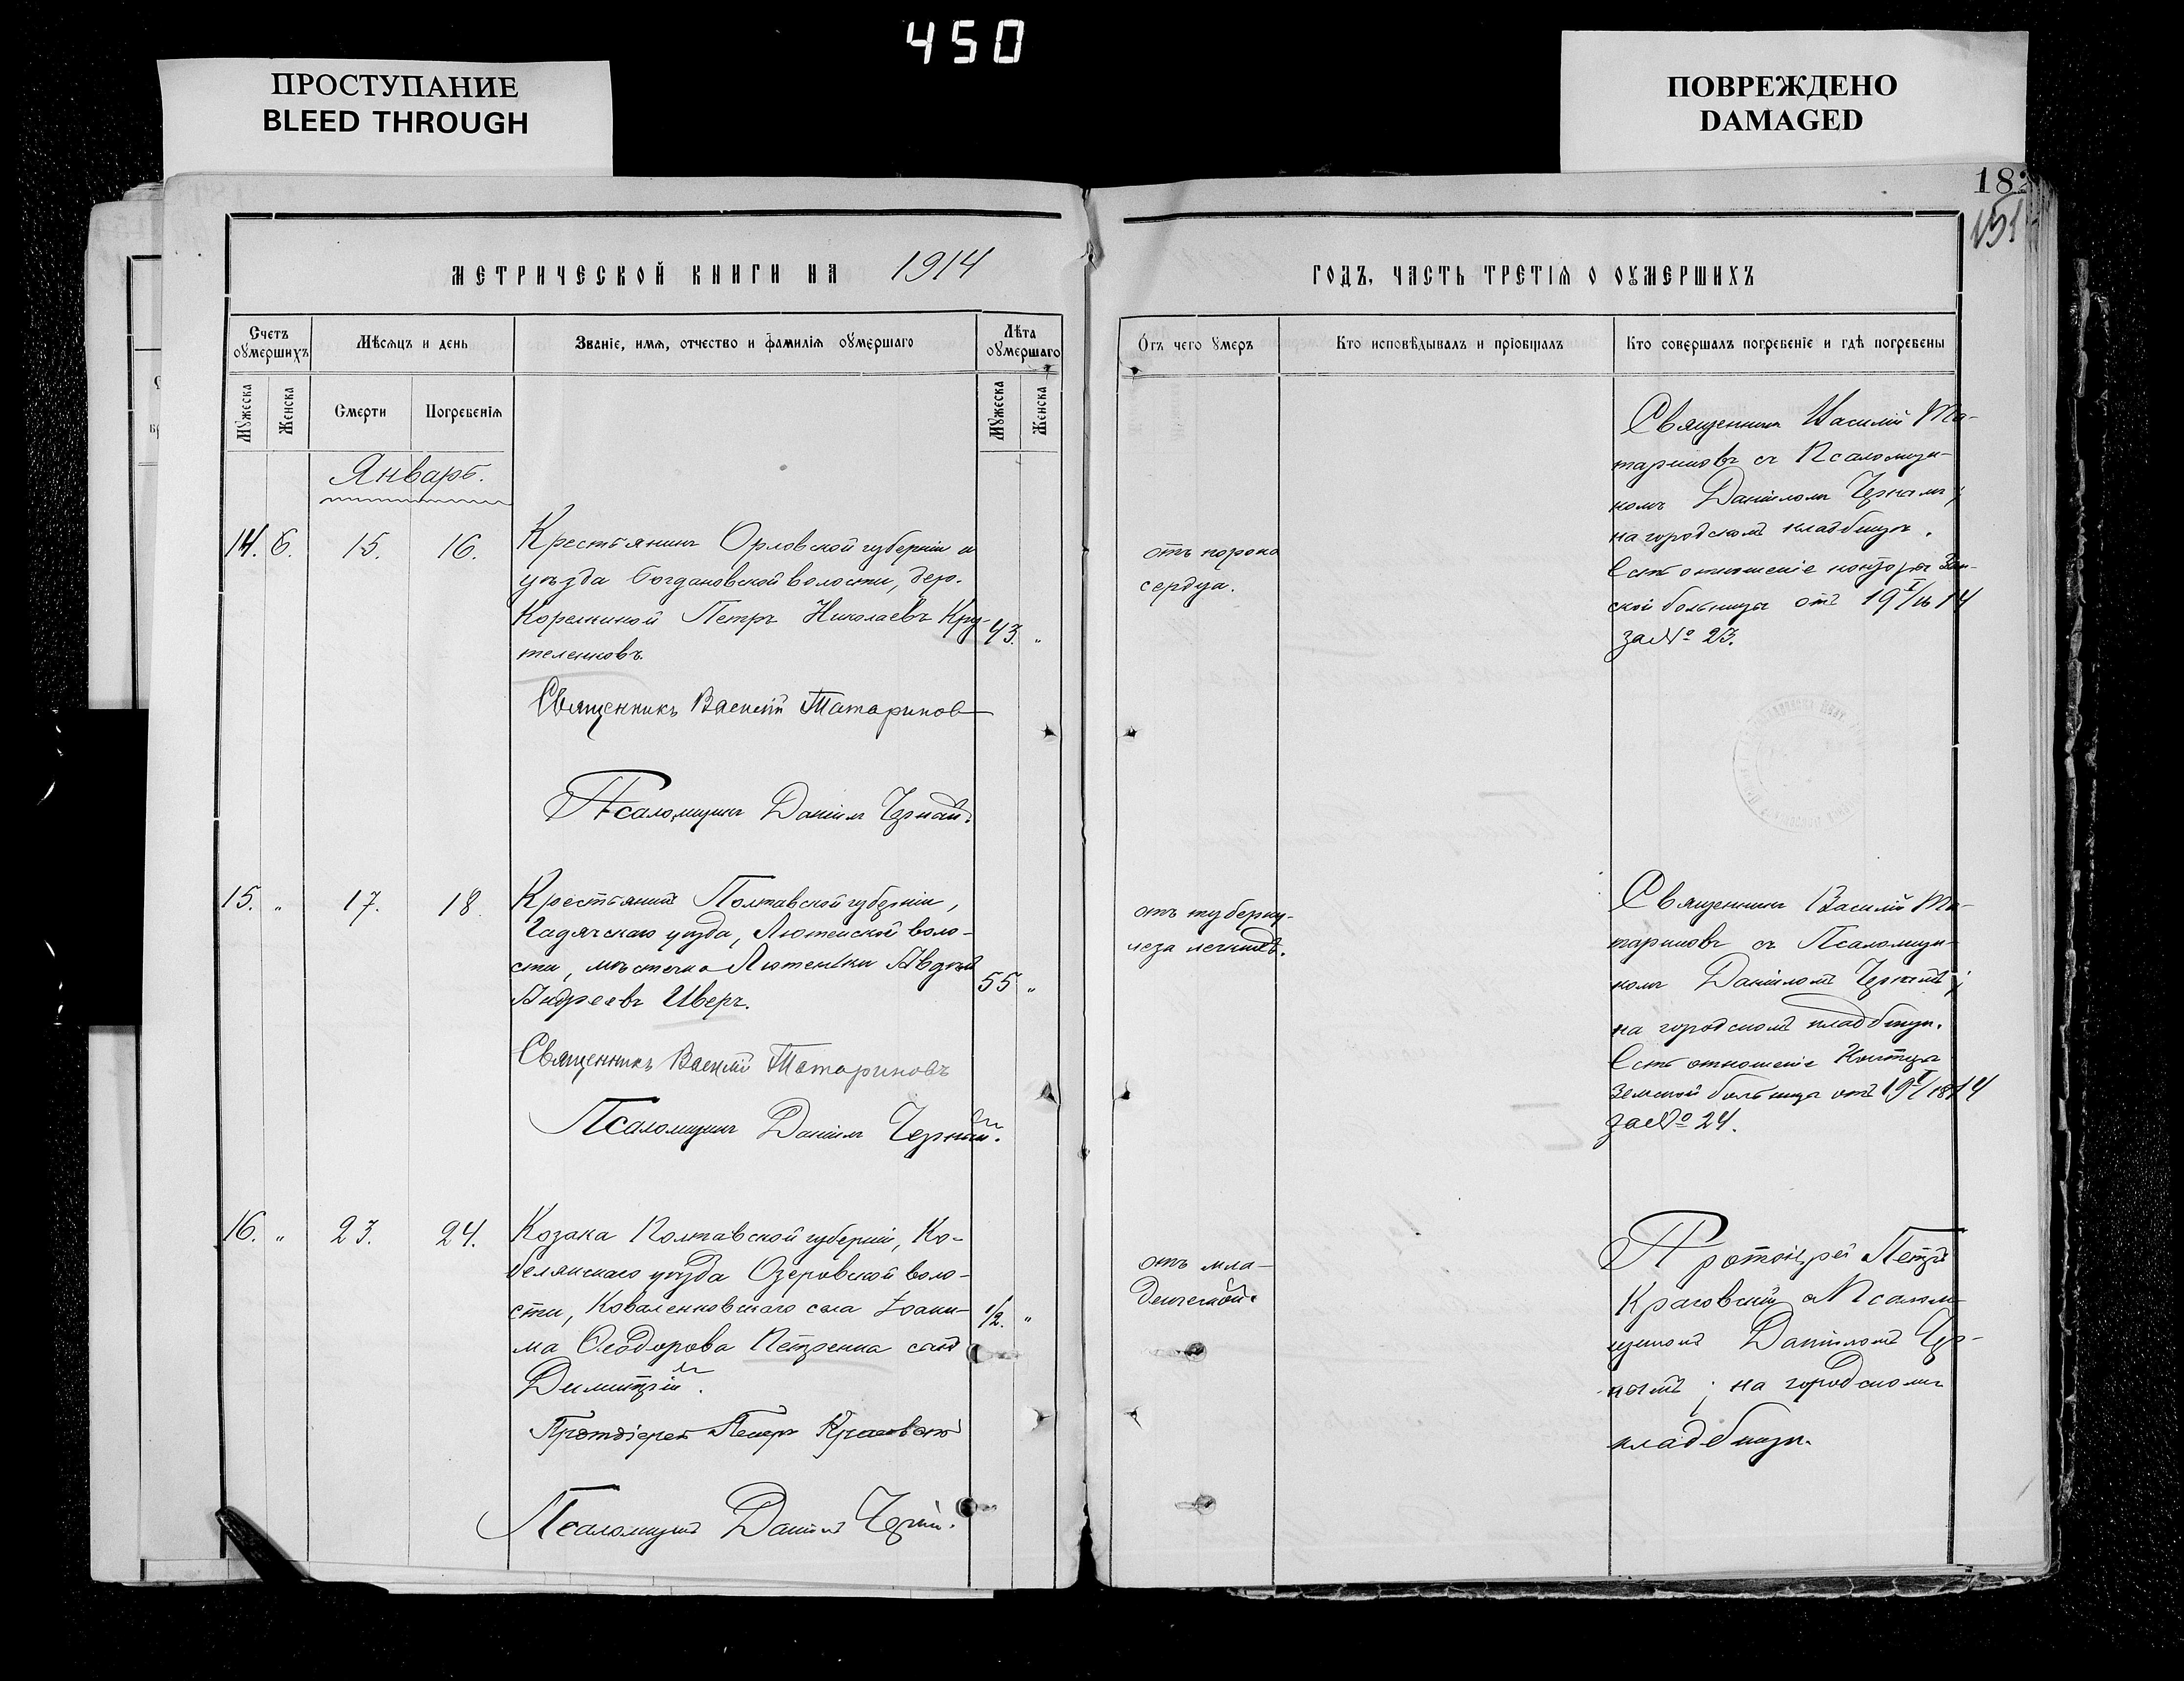 450
ПРОСТУПАНИЕ
BLEED THROUGH
ПОВРЕЖДЕНО
DAMAGED
18
151
МЕТРИЧЕСКОЙ КНИГИ НА 1914
ГОДЪ, ЧАСТЬ ТРЕТІЯ О ОУМЕРШИХЪ
Счетъ оумершихъ
Мѣсяцъ и день
Званіе, имя, отчество и фамилія оумершаго
Лѣта оумершаго
Отъ чего умеръ
Кто исповѣдывалъ и пріобщалъ
Кто совершалъ погребеніе и гдѣ погребены
Мужеска
Женска
Смерти
Погребенія
Мужеска
Женска
Январь.
14. 6. 15. 16.
Крестьянинъ Орловской губерніи и
уѣзда Богдановской волости, дер.
Петръ Николаевъ Кру-
теленковъ.
43. "
Священникъ Василій Татаринов
Псаломщикъ Даніилъ Черный.
отъ порока
сердца.
Священникъ Василій Та-
тариновъ съ Псаломщи-
комъ Даніиломъ Чернымъ;
на городскомъ кладбищѣ.
Есть отношеніе конторы Зем-
ской больницы отъ 19 I/ 14
за № 23.
15. " 17. 18.
Крестьянинъ Полтавской губерніи,
Гадячскаго уѣзда, Лютенской воло-
сти, мѣстечка Лютеньки Авдѣй
Андреевъ Иверъ.
55 "
Священникъ Василій Татариновъ
Псаломщикъ Даніилъ Черный.
отъ туберку-
леза легкихъ.
Священникъ Василій Та-
тариновъ съ Псаломщи-
комъ Даніиломъ Чернымъ;
на городскомъ кладбищѣ.
Есть отношеніе Конторы
Земской больницы отъ 19 I/ 14
за № 24.
16. " 23. 24.
Козака Полтавской губерніи, Ко-
белякскаго уѣзда Озеровской воло-
сти, Коваленковскаго села Іоаки-
ма Ѳеодорова Петренка сынъ
Димитрій.
1/2. "
Протоіерей Петръ
Псаломщикъ Даніилъ Черный.
отъ мла-
денческой.
Протоіерей Петръ
съ Псалом-
щикомъ Даніиломъ Чер-
нымъ; на городскомъ
кладбищѣ.